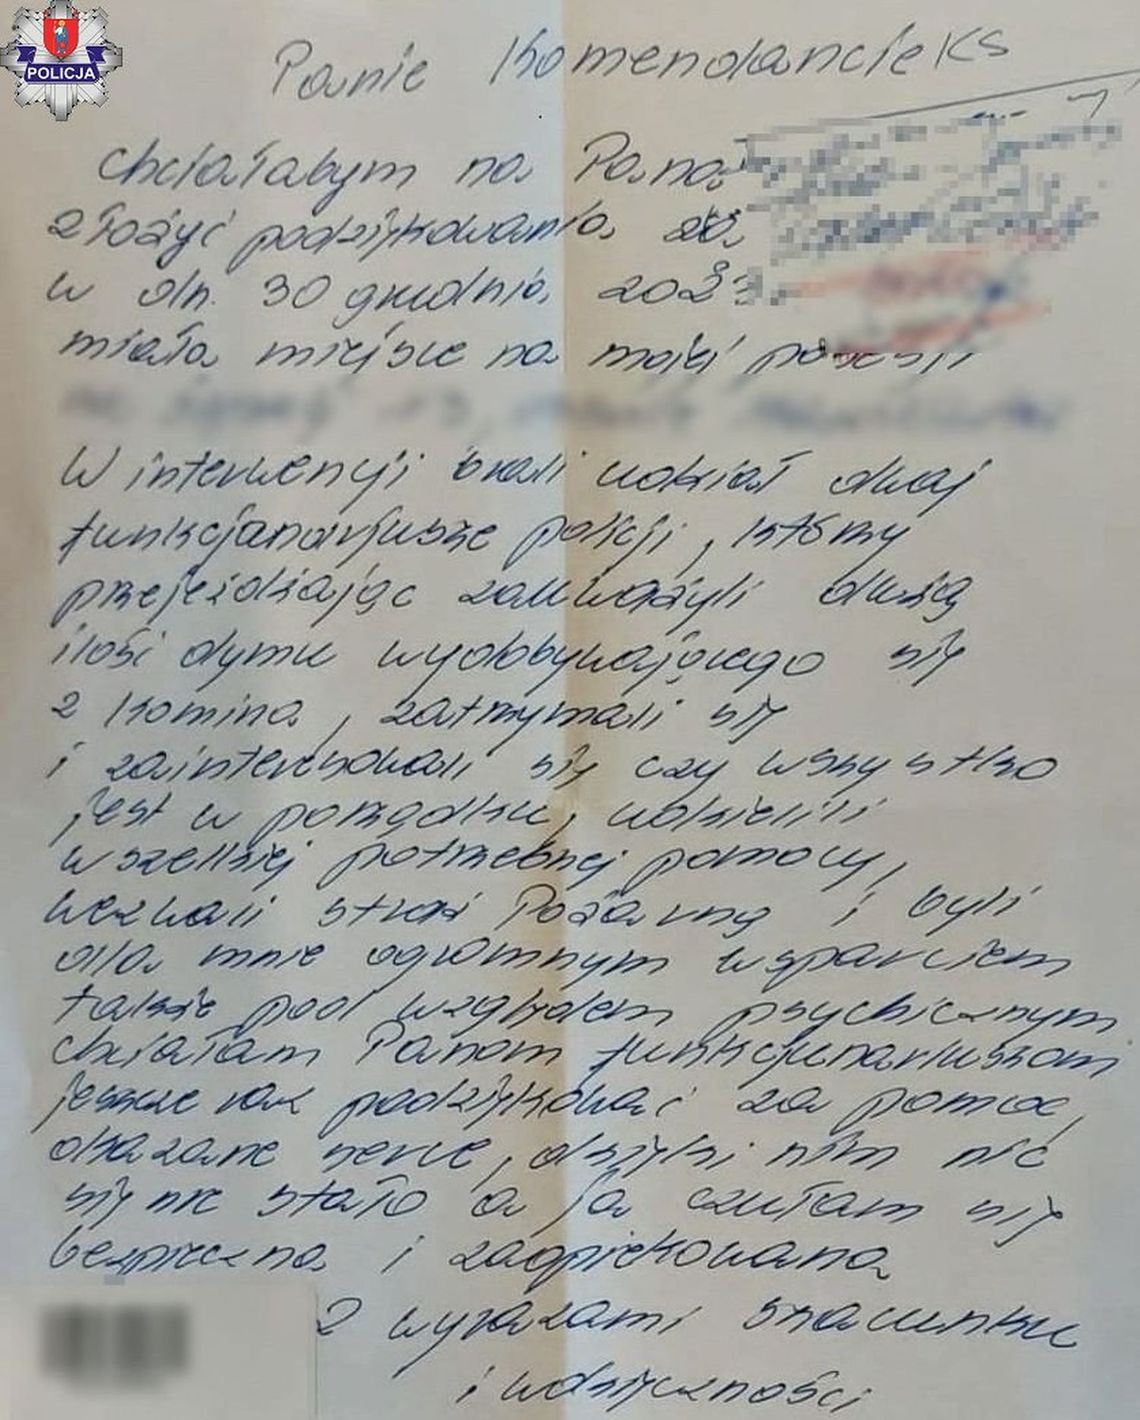 POLICJA
Panie Komendancie KS
chciałabym na Pana
złożyć podziękowania za
w dn. 30 grudnia 2023
miała miejsce na mojej posesji
W interwencji brali udział dwaj
funkcjonariusze policji, którzy
przejeżdżając zauważyli dużą
ilość dymu wydobywającego się
z komina, zatrzymali się
i zainteresowali się czy wszystko
jest w porządku, udzielili
wszelkiej potrzebnej pomocy,
wezwali straż Pożarną i byli
dla mnie ogromnym wsparciem
także pod względem psychicznym
chciałam Panom funkcjonariuszom
jeszcze raz podziękować za pomoc,
okazane serce, dzięki nim nic
się nie stało a ja czułam się
bezpieczna i zaopiekowana
Z wyrazami szacunku
i wdzięczności